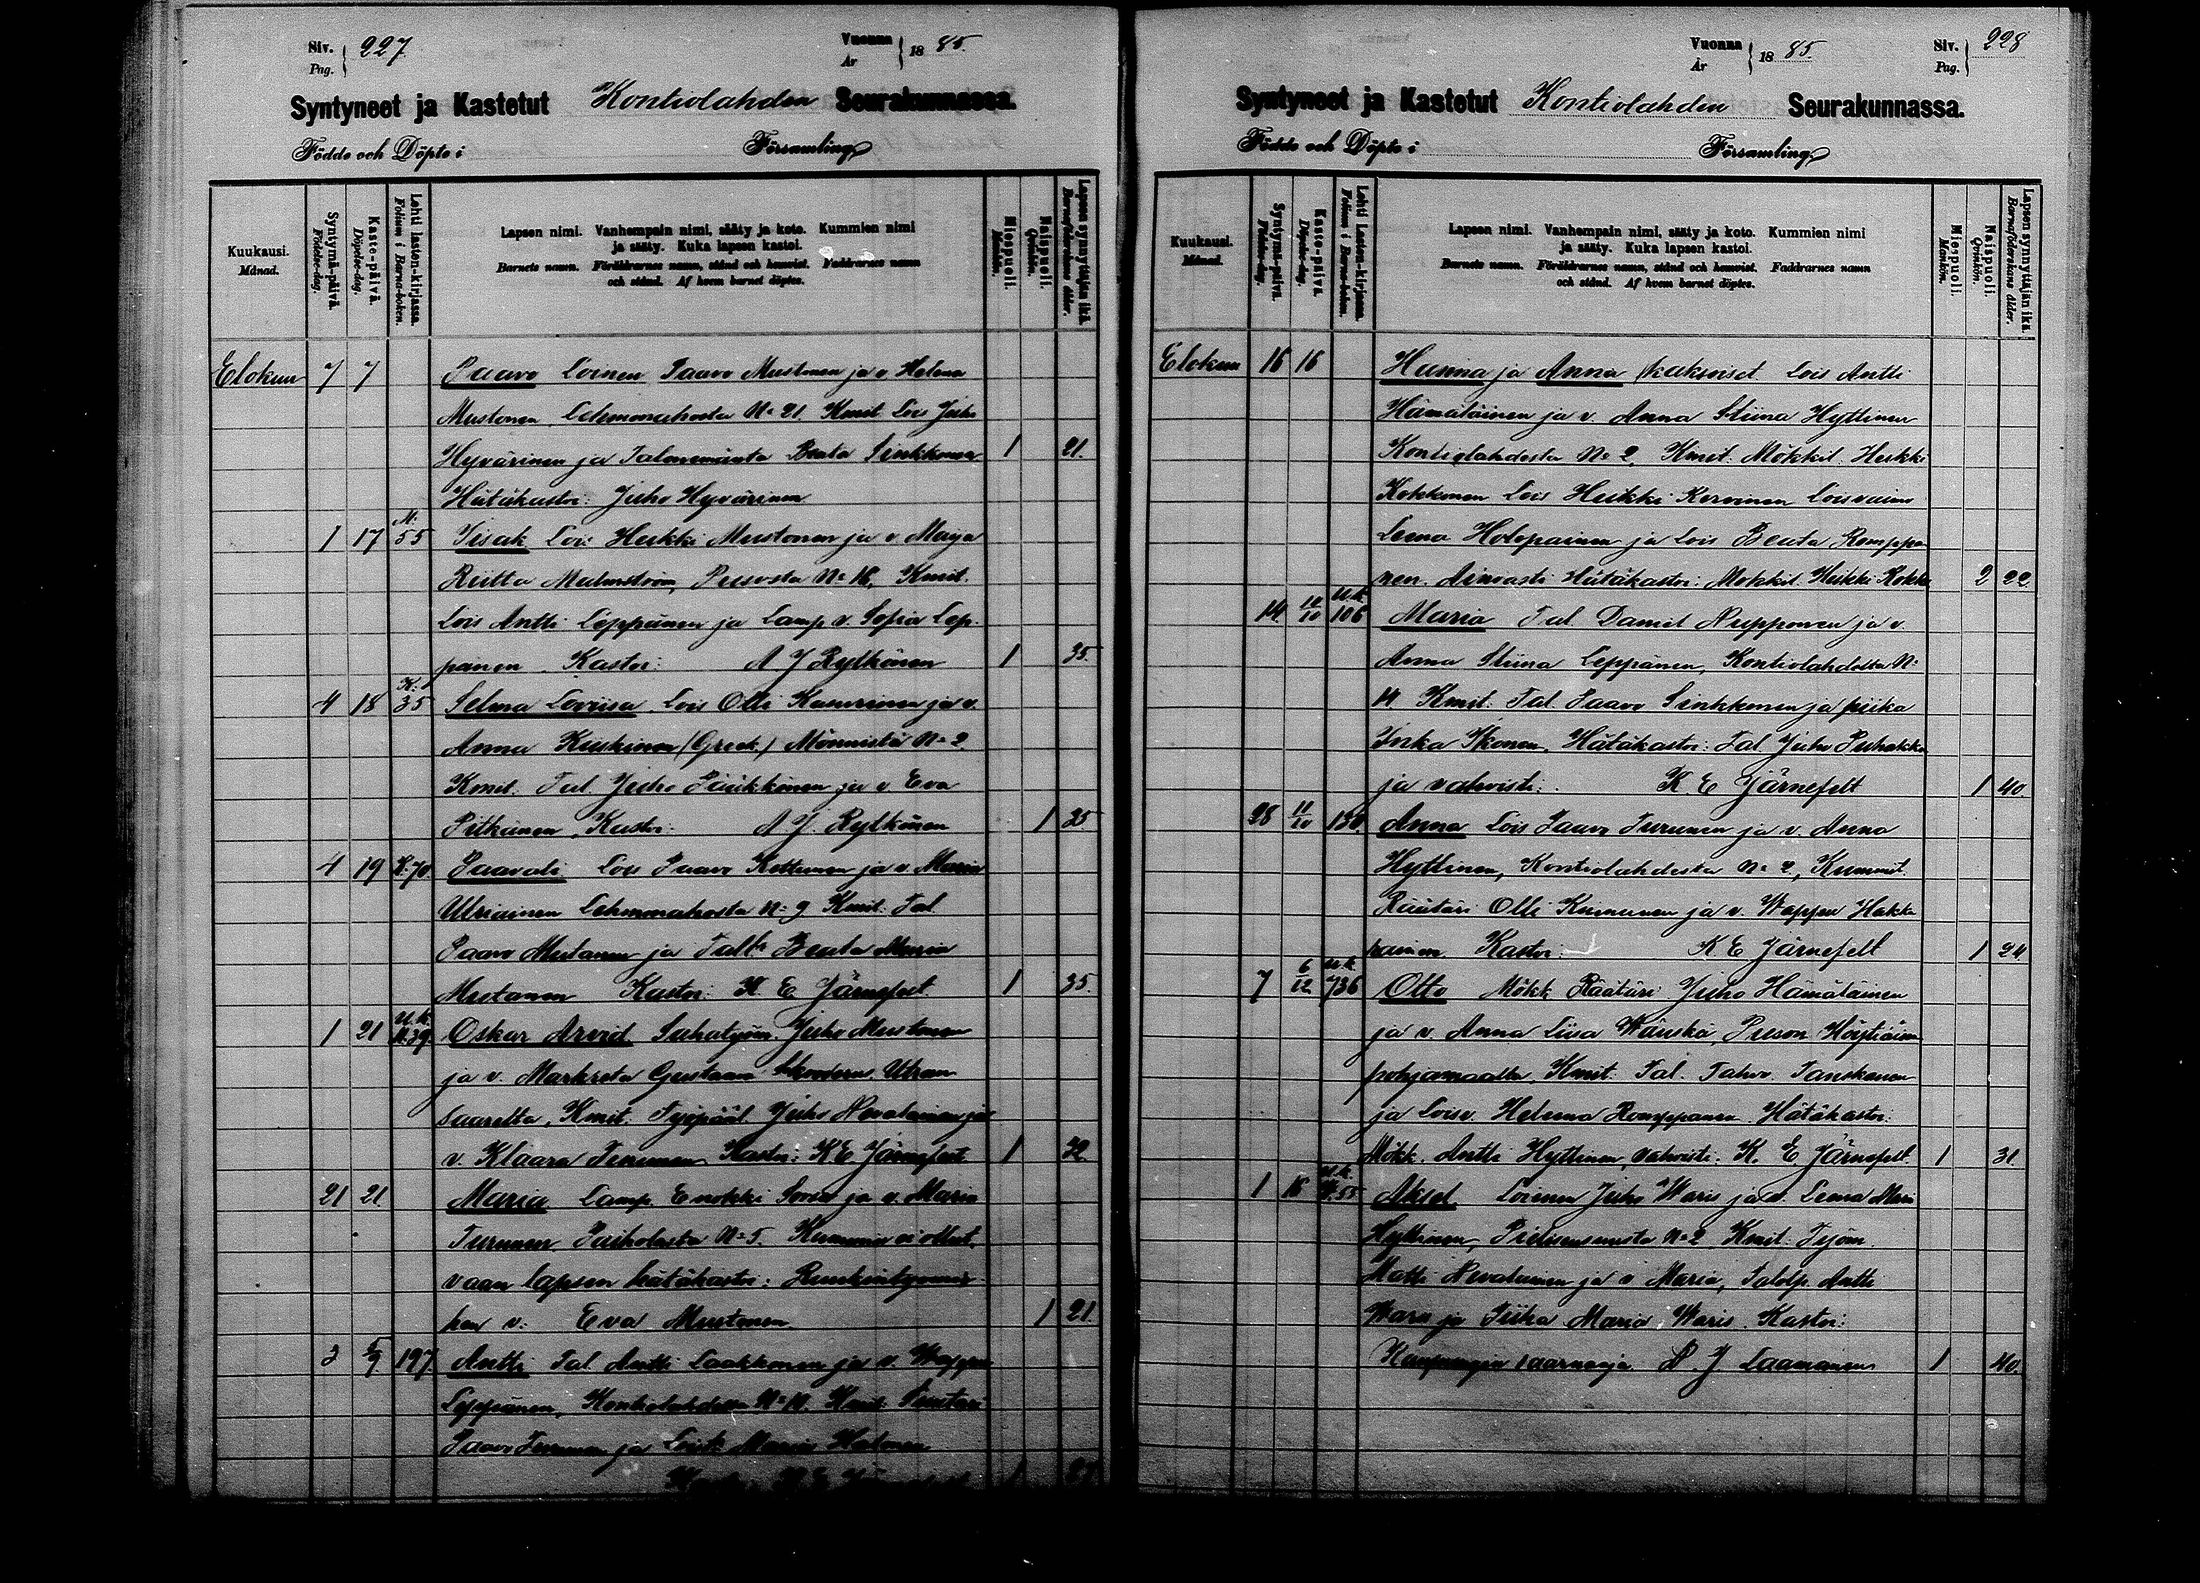 Siv. Pag. 227.
Vuonna År 1885.
Syntyneet ja Kastetut Kontiolahden Seurakunnassa.
Födde och Döpte i Församling
Kuukausi. Månad.
Syntymä-päivä. Födelse-dag.
Kaste-päivä. Döpelse-dag.
Lehti lasten-kirjassa. Folium i Barna-boken.
Lapsen nimi. Vanhempain nimi, sääty ja koto. Kummien nimi
ja sääty. Kuka lapsen kastoi.
Barnets namn. Föräldrarnes namn, stånd och hemvist. Faddrarnes namn
och stånd. Af hvem barnet döptes.
Miespuoli. Mankön.
Naispuoli. Qvinkön.
Lapsen synnyttäjän ikä. Barnaföderskans ålder.
Elokuu 7 7 Paavo Loinen Paavo Mustonen ja v Helena
Mustonen Lehmonahosta No 21. Kmit Lois Juho
Hyvärinen ja Talonemäntä Beata Sinkkonen 1 21.
Hätäkastoi: Juho Hyvärinen
1 17 M. 55 Iisak Lois Heikki Mustonen ja v Maija
Riitta Malmström, Pusosta No 16, Kmit.
Lois Antti Leppänen ja Lamp v. Sofia Lep-
pänen. Kastoi: A J Rytkönen 1 35.
4 18 K: 35 Selma Loviisa, Lois Olli Kanvinen ja v.
Anna Kiiskinen (Greek.) Mönnistä No 2
Kmit. Tal. Juho Piirikkönen ja v Eva
Pitkänen, Kastoi: A J. Rytkönen 1 25
4 19 K. 70 Paavali Lois Paavo Kettunen ja v Maria
Utriainen Lehmonahosta No 9 Kmit. Tal.
Paavo Mustonen ja Beata Maria
Mustonen Kastoi: K. E. Järnefelt. 1 35.
1 21 U.K. M. 39 Oskar Arvid Sahatyöm. Juho Mustonen
ja v. Markreta Gustaava Utran
saarelta, Kmit. Juho Nevalainen ja
v. Klaara Turunen Kastoi: K E Järnefelt 1 32
21 21. Maria Lamp. Enokki ja v. Maria
Turunen, Paiholasta No 5. Kummia ei ollut,
vaan lapsen hätäkastoi:
v: Eva Mustonen 1 21.
3 5/9 197 Antti Tal Antti Laakkonen ja v. Wappu
Leppänen, Kontiolahdesta No Kmit:
Paavo Turunen ja Maria
1 27
Vuonna År 1885.
Siv. Pag. 228
Syntyneet ja Kastetut Kontiolahden Seurakunnassa.
Födde och Döpte i Församling
Kuukausi. Månad.
Syntymä-päivä. Födelse-dag.
Kaste-päivä. Döpelse-dag.
Lehti Lasten-kirjassa. Folium i Barna-boken.
Lapsen nimi. Vanhempain nimi, sääty ja koto. Kummien nimi
ja sääty. Kuka lapsen kastoi.
Barnets namn. Föräldrarnes namn, stånd och hemvist. Faddrarnes namn
och stånd. Af hvem barnet döptes.
Miespuoli. Mankön.
Naispuoli. Qvinkön.
Lapsen synnyttäjän ikä. Barnaföderskans ålder.
Elokuu 16 16 Hanna ja Anna (kaksoiset Lois Antti
Hämäläinen ja v. Anna Stiina Hyttinen
Kontiolahdesta No 2, Kmit: Mökkil. Heikki
Kokkonen Lois Heikki Kervinen Loisvaimo
Leena Holopainen ja Lois Beata Romppa-
nen. Hätäkastoi: Mökkil. Heikki Kokko 2 22
14 11/10 U.K 106 Maria Tal. Daniel Nupponen ja v.
Anna Stiina Leppänen, Kontiolahdesta No
14 Kmit. Tal. Paavo Sinkkonen ja piika
Inka Ikonen, Hätäkastoi: Tal Juho Puhakka
ja vahvisti: K E Järnefelt 1 40.
28 11/10 130 Anna Lois Paavo Turunen ja v. Anna
Hyttinen, Kontiolahdesta No 2, Kummit.
Räätäri Olli Kinnunen ja v. Wappu Hakka
rainen. Kastoi: K E Järnefelt 1 24
7 6/12 U.K 736 Otto Mökk Räätäri Juho Hämäläinen
ja v. Anna Liisa Wänskä, Puson Höytiäisen
pohjamaalta, Kmit: Tal. Tahvo Tanskanen
ja Loisv. Helena Romppanen. Hätäkastoi:
Mökk. Antti Hyttinen, vahvisti: K. E Järnefelt. 1 31.
1 16 U.K. 55 Aksel Loinen Juho Waris ja v. Leena Maria
Hyttinen, Pielisensuusta No 2 Kmit: Työm.
Matti Nevalainen ja v Maria, Talolp. Antti
ja Piika Maria Waris. Kastoi:
Kaupungin saarnaaja J Laamanen 1 40.